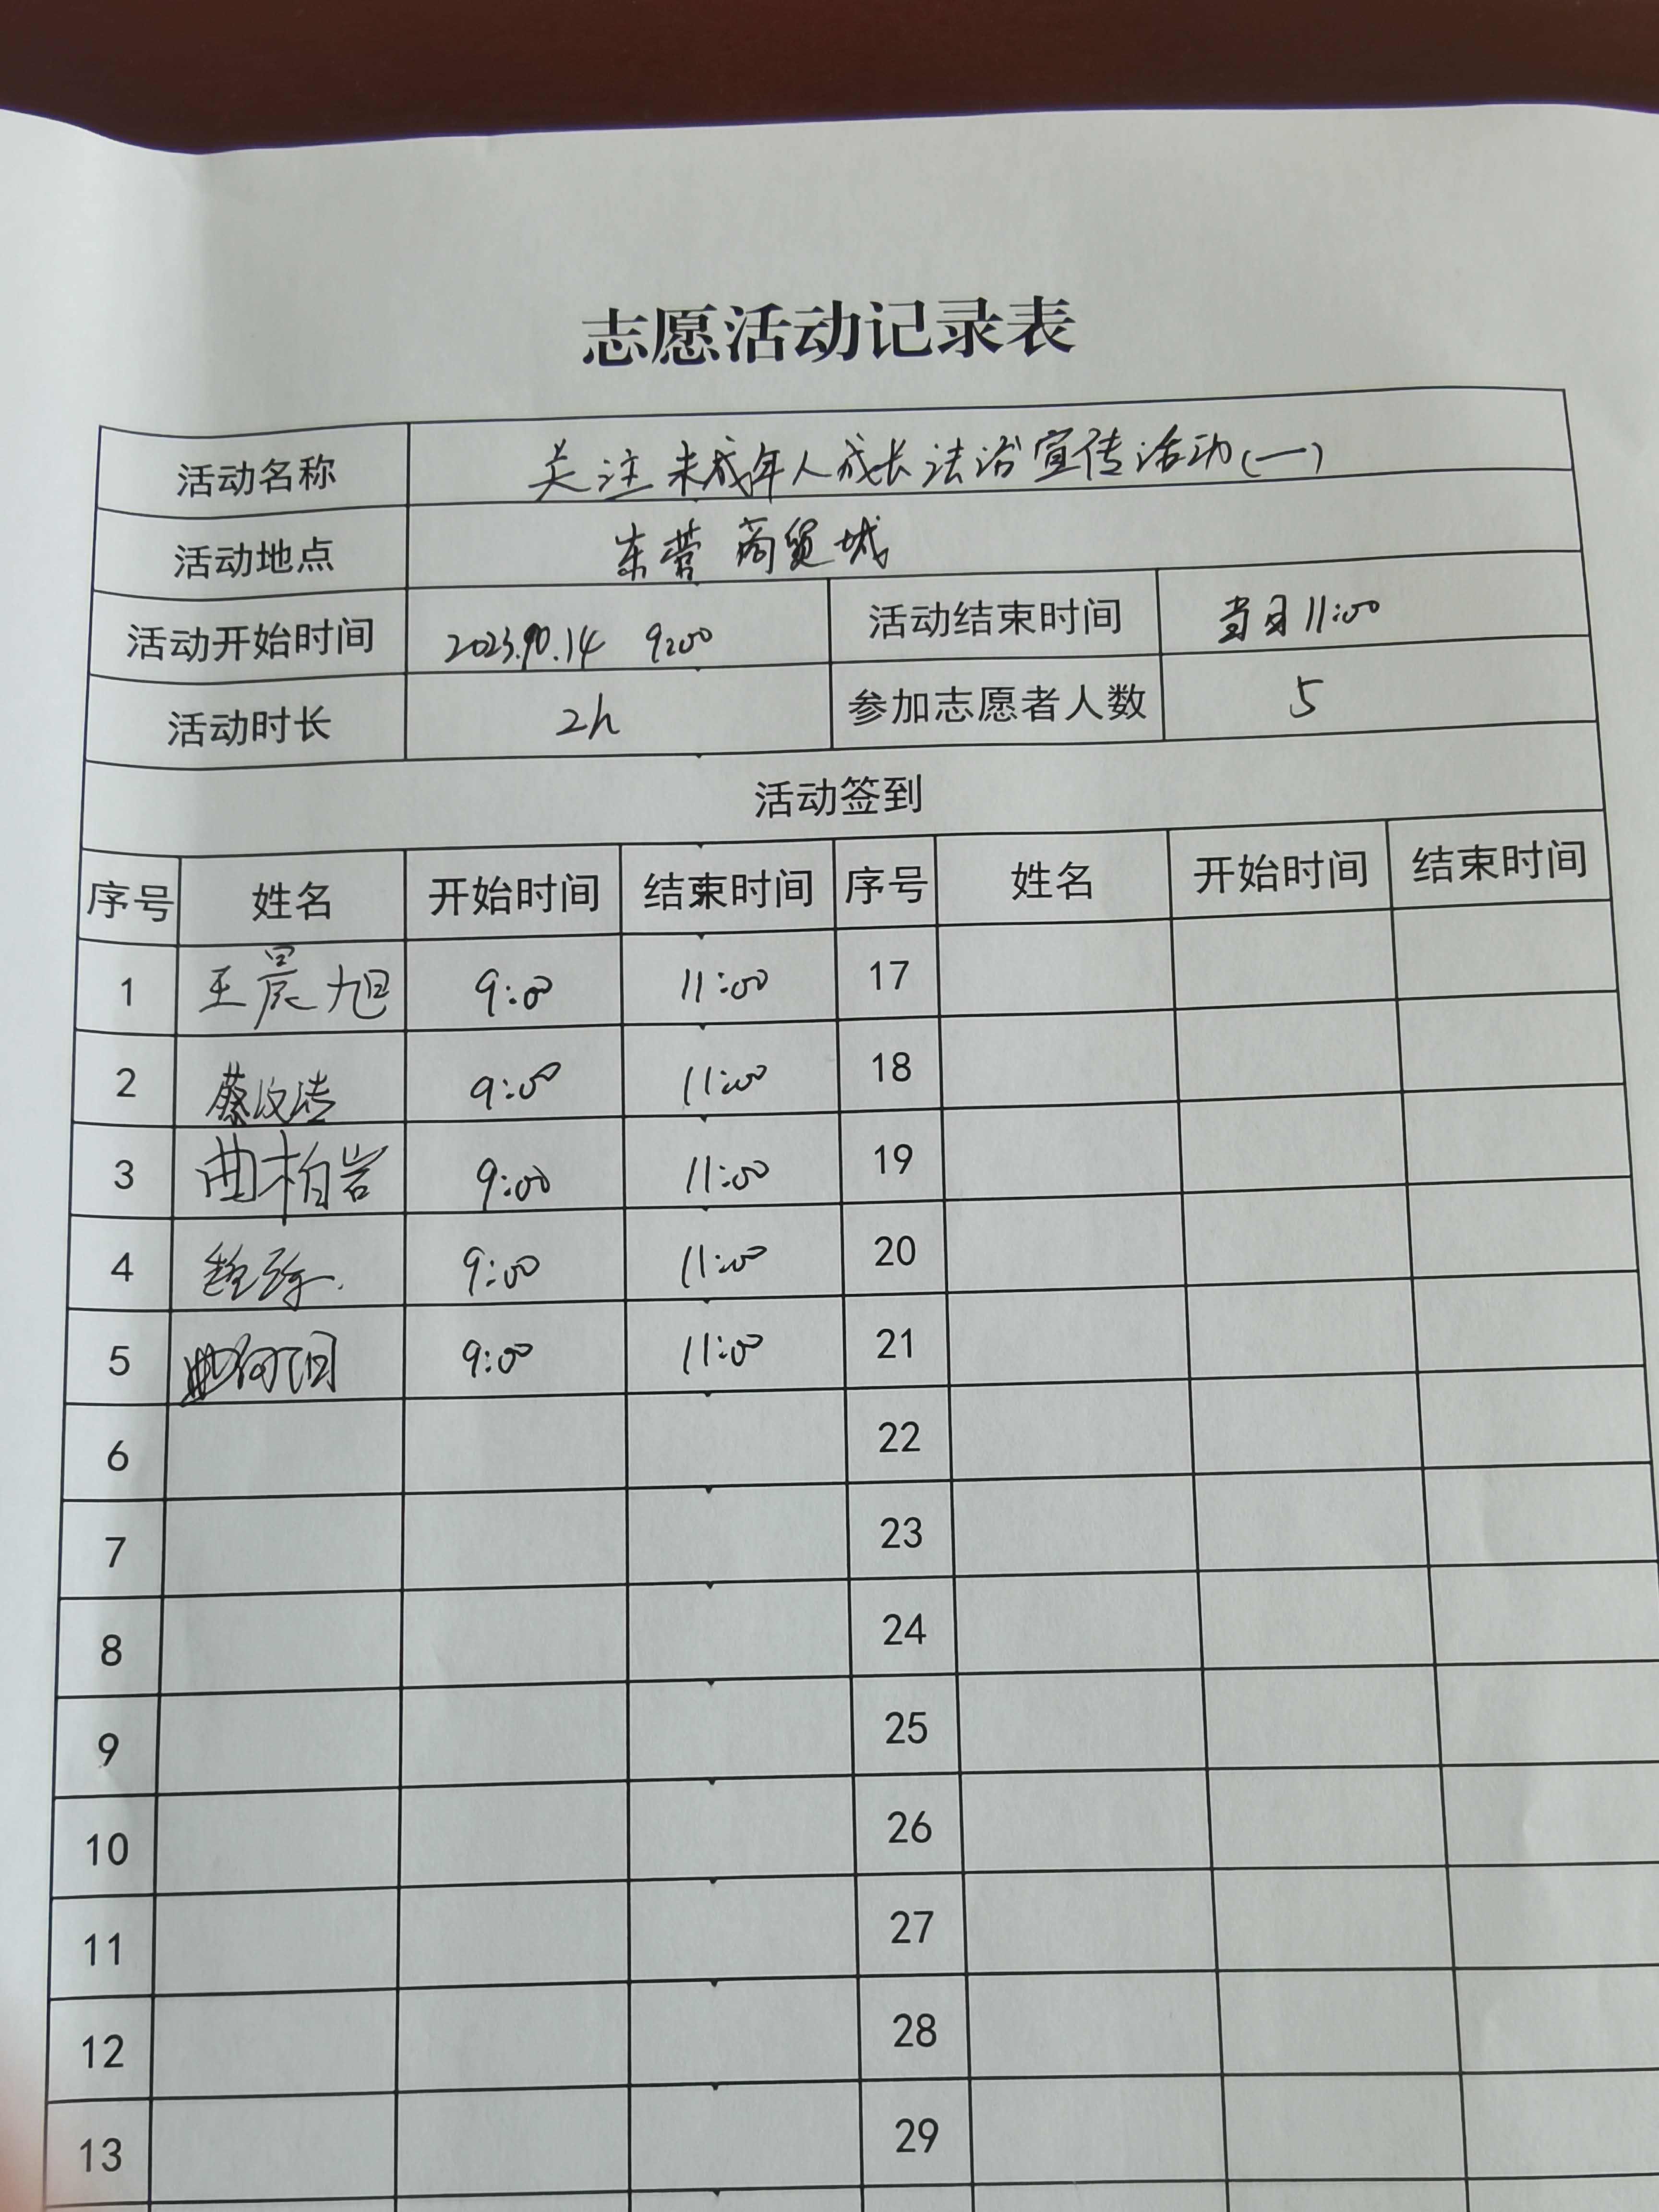 志愿活动记录表
活动名称 关注未成年人成长法治宣传活动(一)
活动地点 东营 商贸城
活动开始时间 2023.10.14 9:00 活动结束时间 当日11:00
活动时长 2h 参加志愿者人数 5
活动签到
序号 姓名 开始时间 结束时间 序号 姓名 开始时间 结束时间
1 王晨旭 9:00 11:00 17
2 蔡 9:00 11:00 18
3 曲柏岩 9:00 11:00 19
4 9:00 11:00 20
5 9:00 11:00 21
6 22
7 23
8 24
9 25
10 26
11 27
12 28
13 29